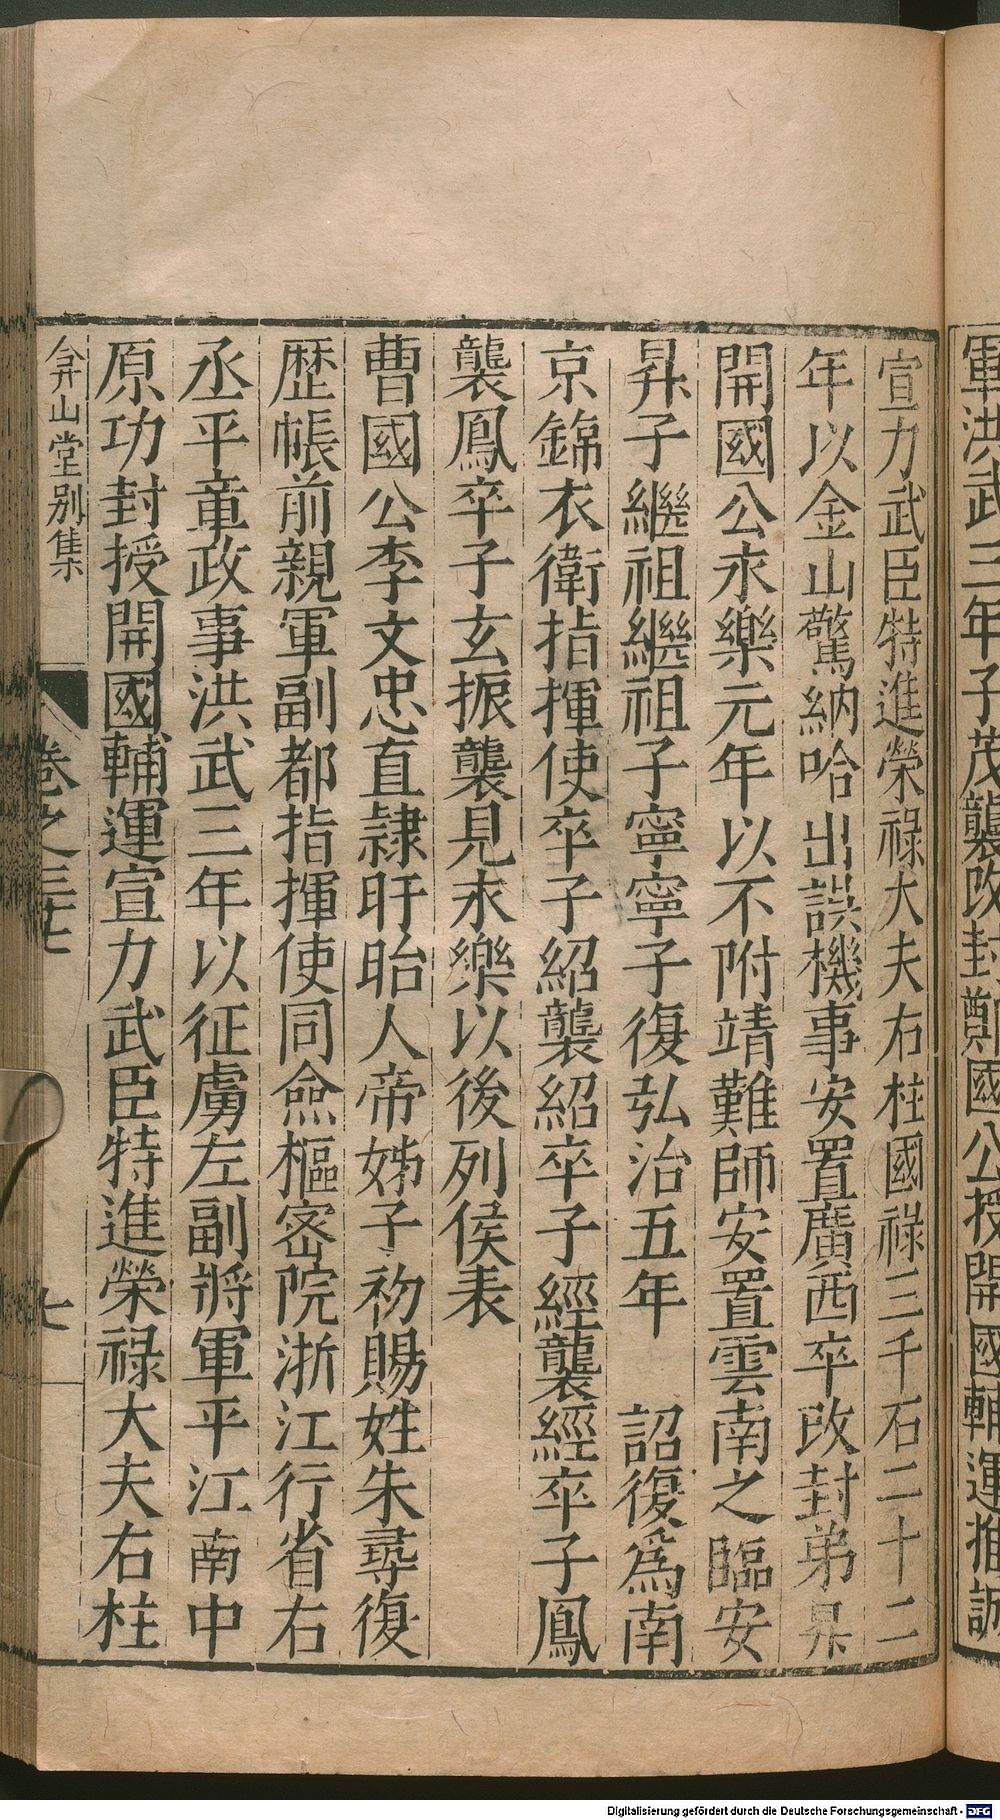 軍洪武三年子茂襲改封鄭國公授開國輔運推誠
宣力武臣特進榮祿大夫右柱國祿三千石二十二
年以金山驚納哈出誤機事安置廣西卒改封弟昇
開國公永樂元年以不附靖難師安置雲南之臨安
昇子繼祖繼祖子寧寧子復弘治五年 詔復爲南
京錦衣衛指揮使卒子紹襲紹卒子經襲經卒子鳳
襲鳳卒子玄振襲見永樂以後列侯表
曹國公李文忠直隷盱眙人帝姊子初賜姓朱尋復
歷帳前親軍副都指揮使同僉樞密院浙江行省右
丞平章政事洪武三年以征虜左副將軍平江南中
原功封授開國輔運宣力武臣特進榮祿大夫右柱
弇山堂別集 卷之三十七 七
Digitalisierung gefördert durch die Deutsche Forschungsgemeinschaft - DFG